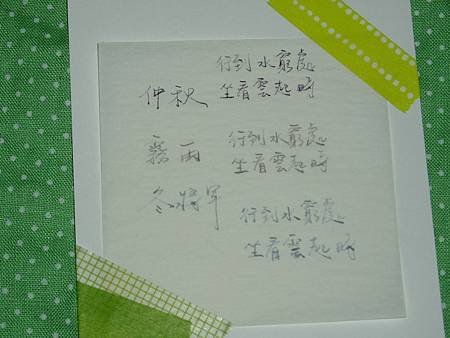 仲秋
行到水窮處
坐看雲起時
霧雨
行到水窮處
坐看雲起時
冬將軍
行到水窮處
坐看雲起時